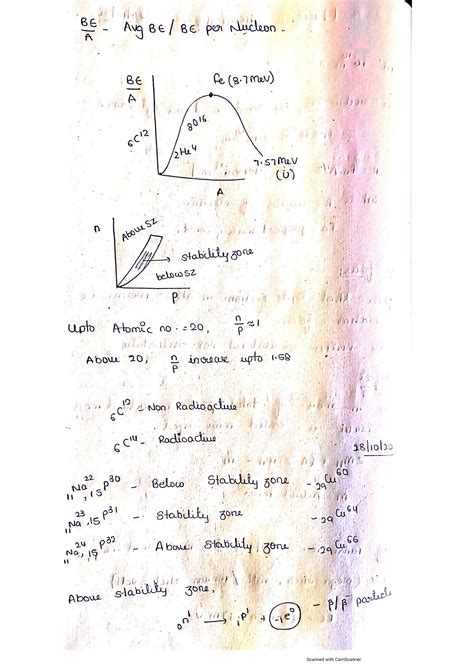 BE/A - Avg BE / BE per Nucleon.
BE/A
Fe (8.7 MeV)
8O16
6C12
2He4
7.57 MeV
(U)
A
n
Above SZ
→ stability zone
below SZ
P
Upto Atomic no. = 20, n/p ≈ 1
Above 20, n/p increase upto 1.58
6C12 - Non Radioactive
6C14 - Radioactive
28/10/20
11Na22, 15P30 - Below Stability zone - 29Cu60
11Na23, 15P31 - Stability zone - 29Cu64
11Na24, 15P32 - Above Stability zone - 29Cu66
Above stability zone,
0n1 → 1P1 + -1e0 - β/β- particle
Scanned with CamScanner